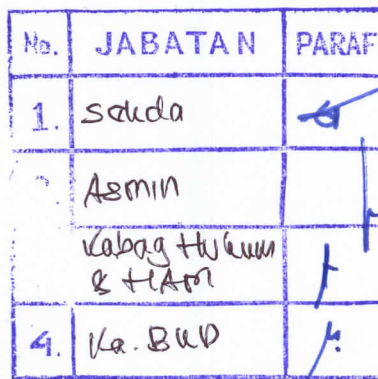 No. JABATAN PARAF
1. Sekda
2. Asmin
Kabag Hukum
& HAM
4. Ka. BKD